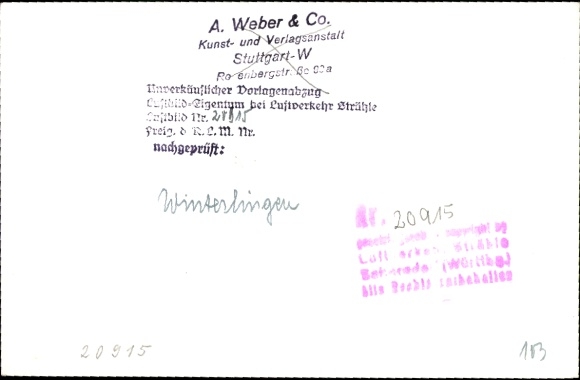 A. Weber & Co.
Kunst- und Verlagsanstalt
Stuttgart-W
Rosenbergstraße 92a
Unverkäuflicher Vorlagenabzug
Luftbild-Eigentum bei Luftverkehr Strähle
Luftbild Nr. 20915
freig. d. R.L.M. Nr.
nachgeprüft:
Winterlingen
Nr. 20915
copyright by
Luftverkehr Strähle
Schorndorf (Württbg)
alle Rechte vorbehalten
20915
103